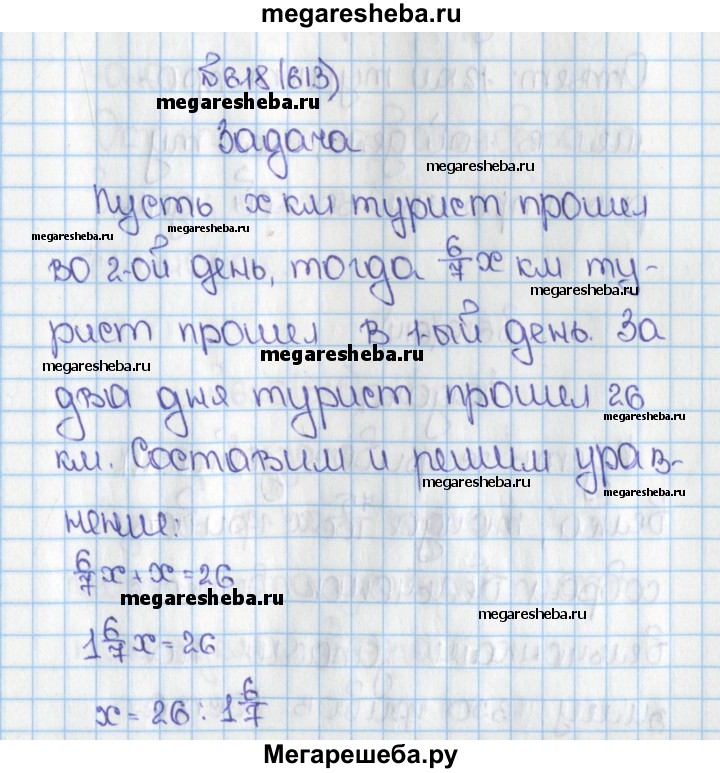 megaresheba.ru
№618 (613)
megaresheba.ru
Задача
megaresheba.ru
Пусть x км турист прошел
megaresheba.ru
во 2-ой день, тогда 6/7 x км ту-
megaresheba.ru
рист прошел в 1-ый день. За
megaresheba.ru
megaresheba.ru
два дня турист прошел 26
megaresheba.ru
км. Составим и решим урав-
megaresheba.ru
megaresheba.ru
нение:
6/7 x + x = 26
megaresheba.ru
megaresheba.ru
1 6/7 x = 26
x = 26 : 1 6/7
Мегарешеба.ру